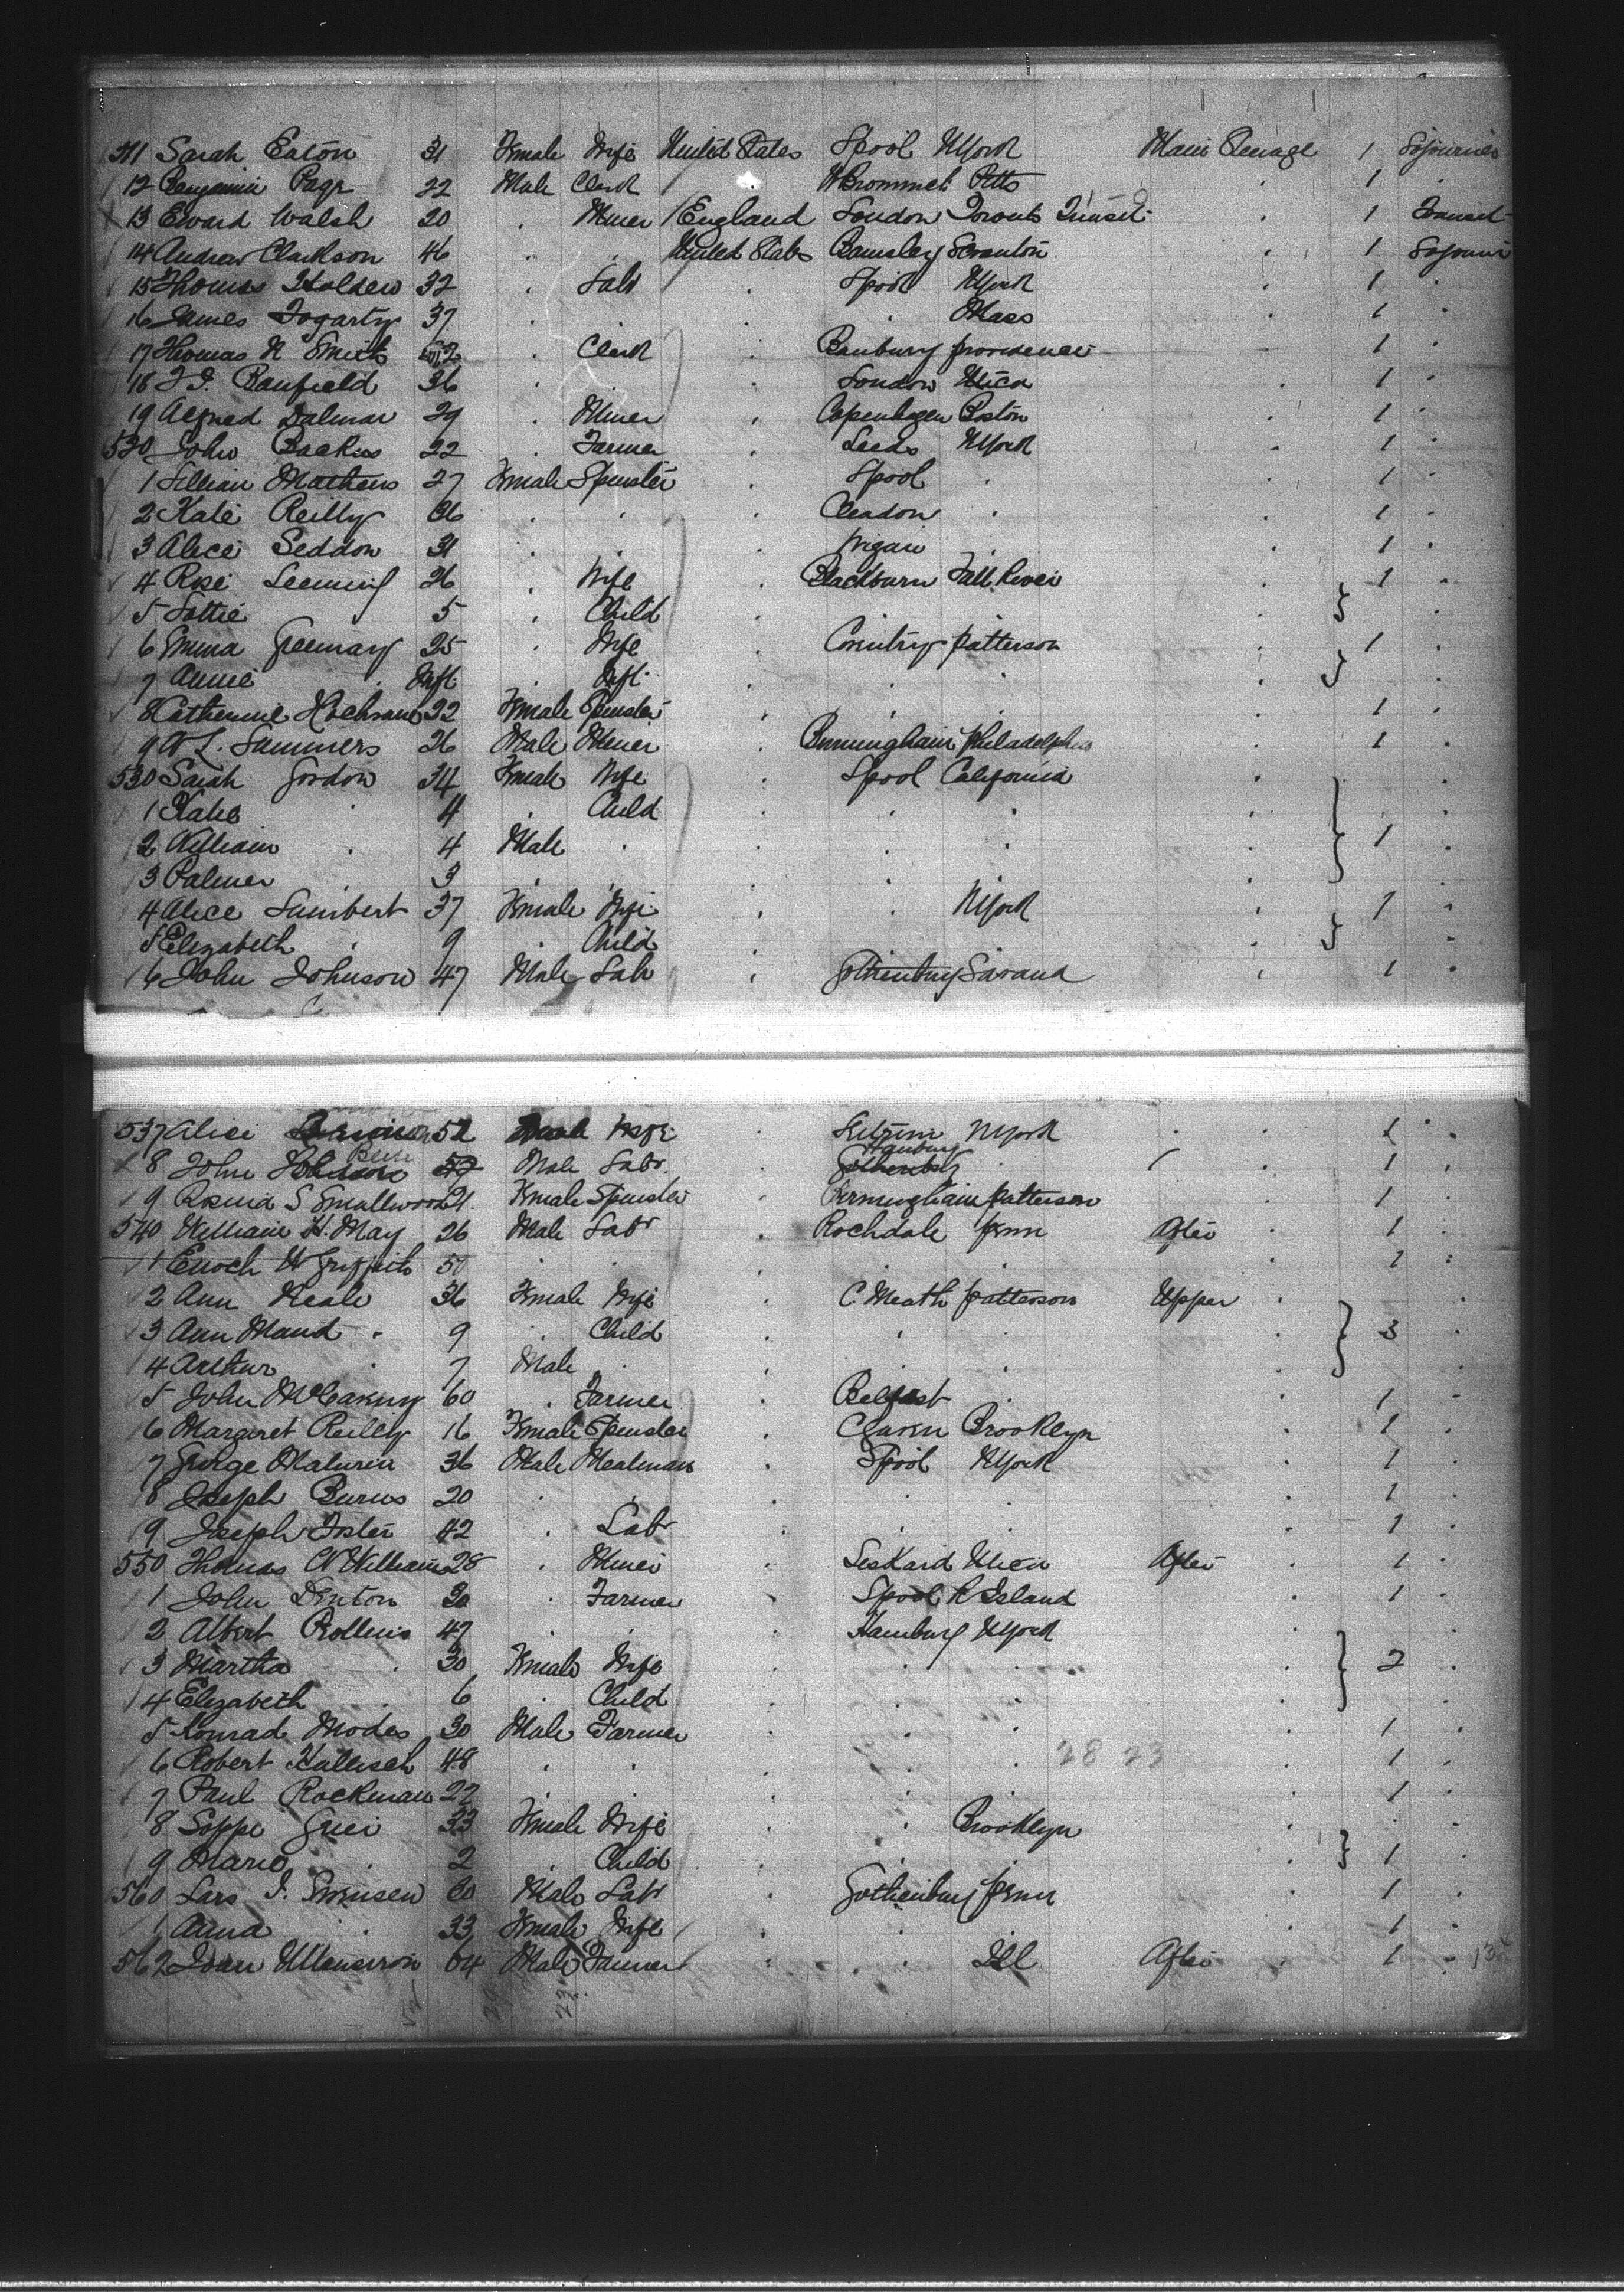 511 Sarah Eaton 31 Female Wife United States Lpool NYork Main Steerage 1 Sojourner
12 Benjamin Page 22 Male Clerk WBrommet Pitts 1
13 Eward Walsh 20 Miner England London Toronto Transit 1 Transit
14 Andrew Clarkson 46 United States Barnsley Scranton 1 Sojourner
15 Thomas Holden 32 Labr Lpool NYork 1
16 James Fogarty 37 Mass 1
17 Thomas N Smith Clerk Banbury Providence 1
18 J. Banfield 36 London Utica 1
19 Alfred Dalmar 29 Miner Copenhagen Boston 1
520 John Backus 22 Farmer Leeds NYork 1
1 Lillian Mathews 27 Female Spinster Lpool 1
2 Kate Reilly 36 Cleadon 1
3 Alice Seddon 31 Wigan 1
4 Rose Leeming 26 Wife Blackburn Fall River 1
5 Lottie 5 Child
6 Emma Greenway 25 Wife Coventry Patterson 1
7 Annie Inft Inft
8 Catherine 22 Female Spinster 1
9 W L. Summers 26 Male Miner Birmingham Philadelphia 1
530 Sarah Gordon 34 Female Wife Lpool California
1 Kate 4 Child
2 William 4 Male 1
3 Palmer 3
4 Alice Lambert 37 Female Wife NYork 1
5 Elizabeth 9 Child
6 John Johnson 47 Male Labr Gothenburg Savana 1
537 Alice 52 Wife NYork 1
Hamburg
8 John 47 Male Labr Gothenburg 1
9 S Smallwood 21 Female Spinster Birmingham Patterson 1
540 William H. May 26 Male Labr Rochdale Penn After 1
1 Enoch W Griffith 50 1
2 Ann Neale 36 Female Wife C. Meath Patterson Upper
3 Ann Maud 9 Child 3
4 Arthur 7 Male
5 John 60 Farmer Belfast 1
6 Margaret Reilly 16 Female Spinster Claven Brooklyn 1
7 George Maturin 36 Male Mealman Lpool NYork 1
8 Joseph Burns 20 1
9 Joseph Foster 42 Labr 1
550 Thomas W William 28 Miner Leskard Utica After 1
1 John Denton 30 Farmer Lpool R Island 1
2 Albert Rollins 47 Hamburg NYork
3 Martha 30 Female Wife 2
4 Elizabeth 6 Child
5 Konrad Modes 30 Male Farmer 1
6 Robert Hallisch 48 28 23 1
7 Paul Rockman 22 1
8 Soppe 33 Female Wife Brooklyn
9 Marie 2 Child 1
560 Lars J. Swensen 30 Male Labr Gothenburg Penn 1
1 Anna 33 Female Wife 1
562 64 Male Farmer Ill After 1